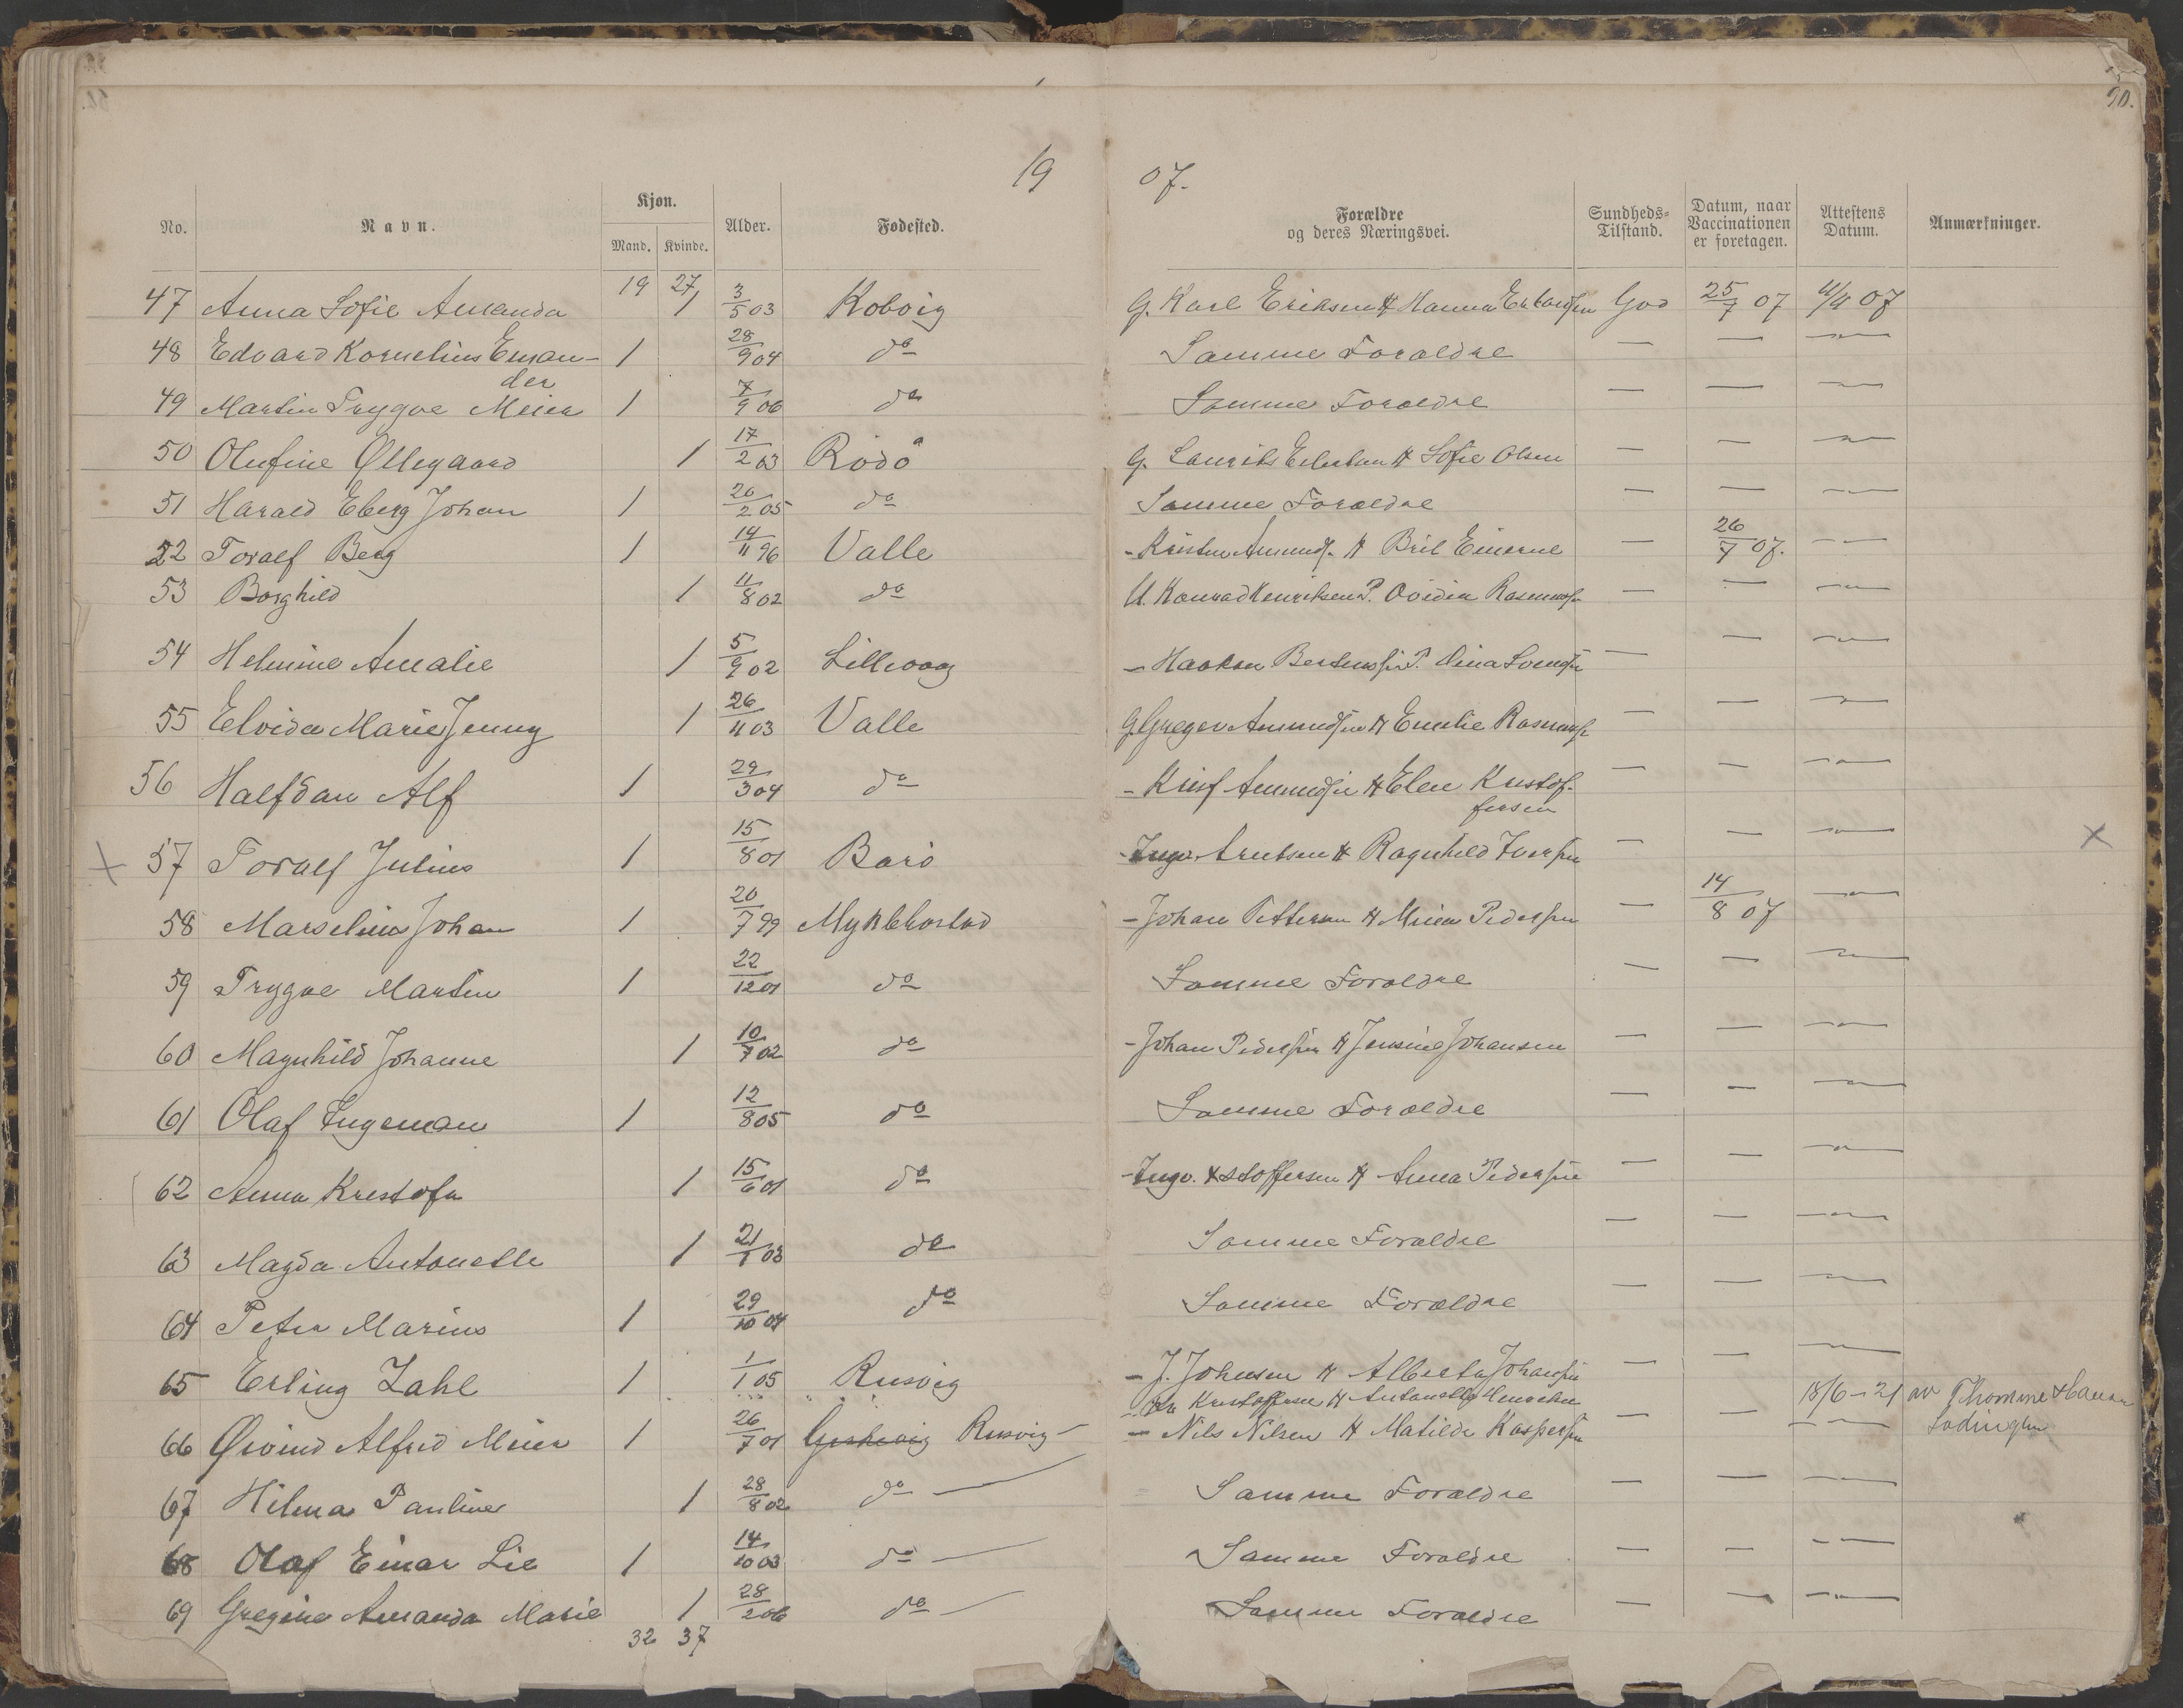 50.
19 07.
No. Navn. Kjøn. Mand. Kvinde. Alder. Fødested. Forældre og deres Næringsvei. Sundheds-Tilstand. Datum, naar Vaccinationen er foretagen. Attestens Datum. Anmærkninger.
19 27
47 Anna Sofie Amanda 1 3/5 03 Kobvig G. Karl Eriksen & Hanna God 25/7 07 4/4 07
48 Edvard Kornelius Eman- 1 28/9 04 do Samme Forældre — — —
der
49 Martin Trygve Meier 1 7/9 06 do Samme Forældre — — —
50 Olufine Ellegaard 1 17/2 03 Rødø G. Laurits & Sofie Olsen — — —
51 Harald Eberg Johan 1 26/2 05 do Samme Forældre — — —
52 Toralf Berg 1 14/11 96 Valle - Kristen Amunds. & — 26/7 07. —
53 Borghild 1 11/8 02 do U. Konrad Henriksen P. Ovidia Rasmuss. — — —
54 Helmine Amalie 1 5/9 02 Lillevaag - Haakon P. Dina — — —
55 Elvida Marie Jenny 1 26/11 03 Valle G. Greger Amundsen & Emelie Rasmuss. — — —
56 Halfdan Alf 1 29/3 04 do - Amundsen & Elen Kristof- — — —
fersen
× 57 Toralf Julius 1 15/8 01 Barø - Arntsen & Ragnhild Iversen — — — ×
58 Marselius Johan 1 20/7 99 Myklebostad - Johan Pettersen & Pedersen — 14/8 07 —
59 Trygve Martin 1 22/12 01 do Samme Forældre — — —
60 Magnhild Johanne 1 10/7 02 do - Johan Pedersen & Jensine Johansen — — —
61 Olaf Ingeman 1 12/8 05 do Samme Forældre — — —
62 Anna Kristofa 1 15/6 01 do - Ingv. Xstoffersen & Anna Pedersen — — —
63 Magda Antonelle 1 21/1 03 do Samme Forældre — — —
64 Peter Marius 1 29/10 04 do Samme Forældre — — —
65 Erling Zahl 1 1/1 05 Rusvig - J. Johnsen & Alberta Johansen — — —
Kristoffersen & Antonelle 18/6-21 av
66 Øivind Alfred Meier 1 26/7 01 Rusvig - Nils Nilsen & Matilde Kaspersen — — — Lødingen
67 Hilma Pauline 1 28/8 02 do — Samme Forældre — — —
68 Olaf Einar Lie 1 14/10 03 do — Samme Forældre — — —
69 Gregine Amanda Marie 1 28/2 06 do — Samme Forældre — — —
32 37